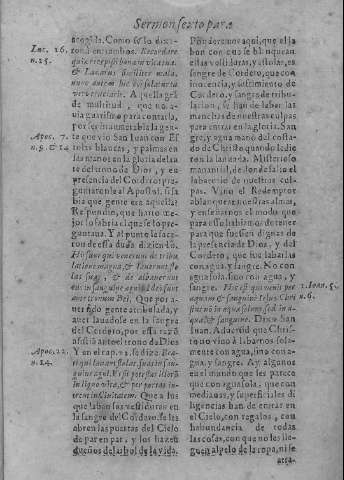 Sermon sexto para
acogida. Como se lo dixe-
Luc. 16.
n. 25.
ron a entrambos. Recordare
quia recepisti bona in vita tua.
& Lazarus similiter mala,
nunc autem hic
vero cruciaris. A aquella gran
de multitud, que no a-
uia guarismo para contarla,
por ser innumerable la gen-
Apoc. 7.
n. 9. & 14
te que vio San Iuan con Es
tolas blancas, y palmas en
las manos en la gloria delan
te del trono de Dios, y en
presencia del Cordero: pre
guntaronle al Apostol, si sa
bia que gente era aquella?
Respondio, que harto me-
jor lo sabria el que se lo pre-
guntaua. Y al punto le saca-
ron de essa duda diziendo.
Hi sunt qui venerunt de tribu
latione magna, & lauerunt sto
las suas, & de albauerunt
eas in sanguine agni. Ideo sunt
ante tronum Dei. Que por a-
uer sido gente atribulada, y
auer lauadose en la sangre
del Cordero, por essa razõ
assistia ante el trono de Dios
Apoc. 22.
n. 14.
Y en el cap. 22. se dize. Bea-
ti qui lauant stolas suas in san-
guine agni. Vt sit potestas illorũ
in ligno vitæ, & per portas in-
trent in Ciuitatem. Que a los
que laban sus vestiduras en
la sangre del Cordero, se les
abren las puertas del Cielo
de par en par, y los hazen
dueños del arbol de la vida.
Ponderemos aqui, que el la
bon con que se blanquean
ellas vestiduras, y estolas, es
sangre de Cordero, que co-
inocencia, y sufrimiento de
Cordero, y sangre de tribu-
lacion, se han de labar las
manchas de nuestras culpas
para entrar en la gloria. San
gre, y agua manò del costa-
do de Christo quando le dio
ron la lançada. Misterioso
manantial, de el salio el
labatorio de nuestras cul-
pas. Vino el Redemptor
a blanquear nuestras almas,
y enseñarnos el modo que
para esso auiamos de tener
para que fuessen dignas de
la presencia de Dios, y del
Cordero, que fue labarlas
con agua, y sangre. No con
agua sola, sino con agua, y
sangre. Hic est qui venit per
1. Ioan. 5.
n. 6.
aquam & sanguine Iesus Chri
stus non in aqua solum, sed in a-
qua & sanguine. Dize San
Iuan. Aduertid que Chris-
to no vino à labarnos sola-
mente con agua, sino con a-
gua, y sangre. Ay algunos
en el mundo que les parece
que con agua sola, que con
medianas, y superficiales di
ligencias han de entrar en
el Cielo, con regalos, con
habundancia de todas
las cosas, con que no les lle-
guen al pelo de la ropa, ni se